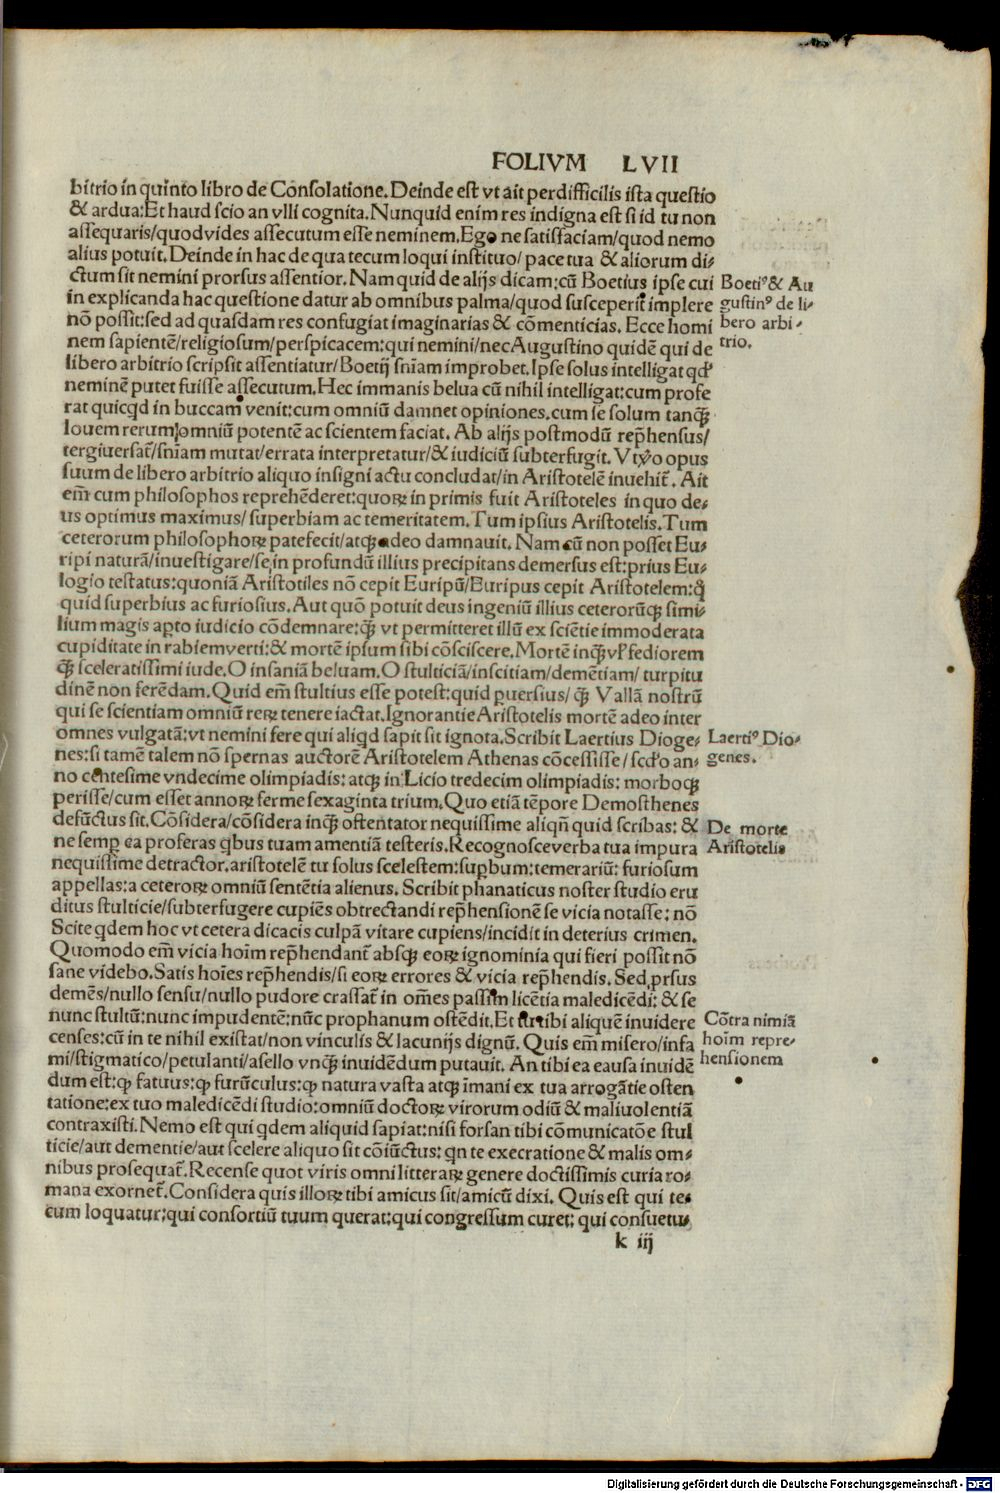 FOLIVM LVII
bitrio in quinto libro de Consolatione. Deinde est vt ait perdifficilis ista questio
& ardua: Et haud scio an vlli cognita. Nunquid enim res indigna est si id tu non
assequaris/quod vides assecutum esse neminem. Ego ne satisfaciam/quod nemo
alius potuit. Deinde in hac de qua tecum loqui instituo/ pace tua & aliorum di-
ctum sit nemini prorsus assentior. Nam quid de alijs dicam: cū Boetius ipse cui
in explicanda hac questione datur ab omnibus palma/quod susceperit implere
nō possit: sed ad quasdam res confugiat imaginarias & cōmenticias. Ecce homi
nem sapientē/religiosum/perspicacem: qui nemini/nec Augustino quidē qui de
libero arbitrio scripsit assentiatur/Boetij sn̄iam improbet. Ipse solus intelligat qđ
neminē putet fuisse assecutum. Hec immanis belua cū nihil intelligat: cum profe
rat quicqd in buccam venit: cum omniū damnet opiniones. cum se solum tanq̃
Iouem rerum omniū potentē ac scientem faciat. Ab alijs postmodū rep̄hensus/
tergiuersat̄/sn̄iam mutat/errata interpretatur/& iudiciū subterfugit. Vt ṽo opus
suum de libero arbitrio aliquo insigni actu concludat/in Aristotelē inuehit̄. Ait
em̄ cum philosophos reprehēderet: quoꝝ in primis fuit Aristoteles in quo de-
us optimus maximus/ superbiam ac temeritatem. Tum ipsius Aristotelis. Tum
ceterorum philosophoꝝ patefecit/atqꝫ adeo damnauit. Nam cū non posset Eu-
ripi naturā/inuestigare/se in profundū illius precipitans demersus est: prius Eu-
logio testatus: quoniā Aristotiles nō cepit Euripū/Euripus cepit Aristotelem: q̄
quid superbius ac furiosius. Aut quō potuit deus ingeniū illius ceterorūqꝫ simi-
lium magis apto iudicio cōdemnare: q̃ vt permitteret illū ex sciētie immoderata
cupiditate in rabiem verti: & mortē ipsum sibi cōsciscere. Mortē inqꝫ vl' fediorem
q̃ sceleratissimi iude. O insaniā beluam. O stulticiā/inscitiam/demētiam/ turpitu
dinē non ferēdam. Quid em̄ stultius esse potest: quid ꝑuersius/ q̃ Vallā nostrū
qui se scientiam omniū reꝝ tenere iactat. Ignorantie Aristotelis mortē adeo inter
omnes vulgatā: vt nemini fere qui aliqd sapit sit ignota. Scribit Laertius Dioge-
nes: si tamē talem nō spernas auctorē Aristotelem Athenas cōcessisse/ scđo an-
no centesime vndecime olimpiadis: atqꝫ in Licio tredecim olimpiadis: morboqꝫ
perisse/cum esset annoꝝ ferme sexaginta trium. Quo etiā tēpore Demosthenes
defūctus sit. Cōsidera/cōsidera inqꝫ ostentator nequissime aliqn̄ quid scribas: &
ne semꝑ ea proferas qbus tuam amentiā testeris. Recognosce verba tua impura
nequissime detractor. aristotelē tu solus scelestem: suꝑbum: temerariū: furiosum
appellas: a ceteroꝝ omniū sentētia alienus. Scribit phanaticus noster studio eru
ditus stulticie/subterfugere cupiēs obtrectandi rep̄hensionē se vicia notasse: nō
Scite qdem hoc vt cetera dicacis culpā vitare cupiens/incidit in deterius crimen.
Quomodo em̄ vicia hoīm rep̄hendant̄ absqꝫ eoꝝ ignominia qui fieri possit nō
sane videbo. Satis hoīes rep̄hendis/si eoꝝ errores & vicia rep̄hendis. Sed ꝓrsus
demēs/nullo sensu/nullo pudore crassat̄ in om̄es passim licētia maledicēdi: & se
nunc stultū: nunc impudentē: nūc prophanum ostēdit. Et tu tibi aliquē inuidere
censes: cū in te nihil existat/non vinculis & lacunijs dignū. Quis em̄ misero/infa
mi/stigmatico/petulanti/asello vnq̃ inuidēdum putauit. An tibi ea eausa inuidē
dum est: ꝙ fatuus: ꝙ furūculus: ꝙ natura vasta atqꝫ īmani ex tua arrogātie osten
tatione: ex tuo maledicēdi studio: omniū doctoꝝ virorum odiū & maliuolentiā
contraxisti. Nemo est qui qdem aliquid sapiat: nisi forsan tibi cōmunicatōe stul
ticie/aut dementie/aut scelere aliquo sit cōiūctus: qn te execratione & malis om-
nibus prosequat̄. Recense quot viris omni litteraꝝ genere doctissimis curia ro-
mana exornet̄. Considera quis illoꝝ tibi amicus sit/amicū dixi. Quis est qui te-
cum loquatur: qui consortiū tuum querat: qui congressum curet: qui consuetu-
k iij
Boetiꝰ & Au
gustinꝰ de li-
bero arbi-
trio.
Laertiꝰ Dio-
genes.
De morte
Aristotelis
Cōtra nimiā
hoīm repre-
hensionem
Digitalisierung gefördert durch die Deutsche Forschungsgemeinschaft - DFG